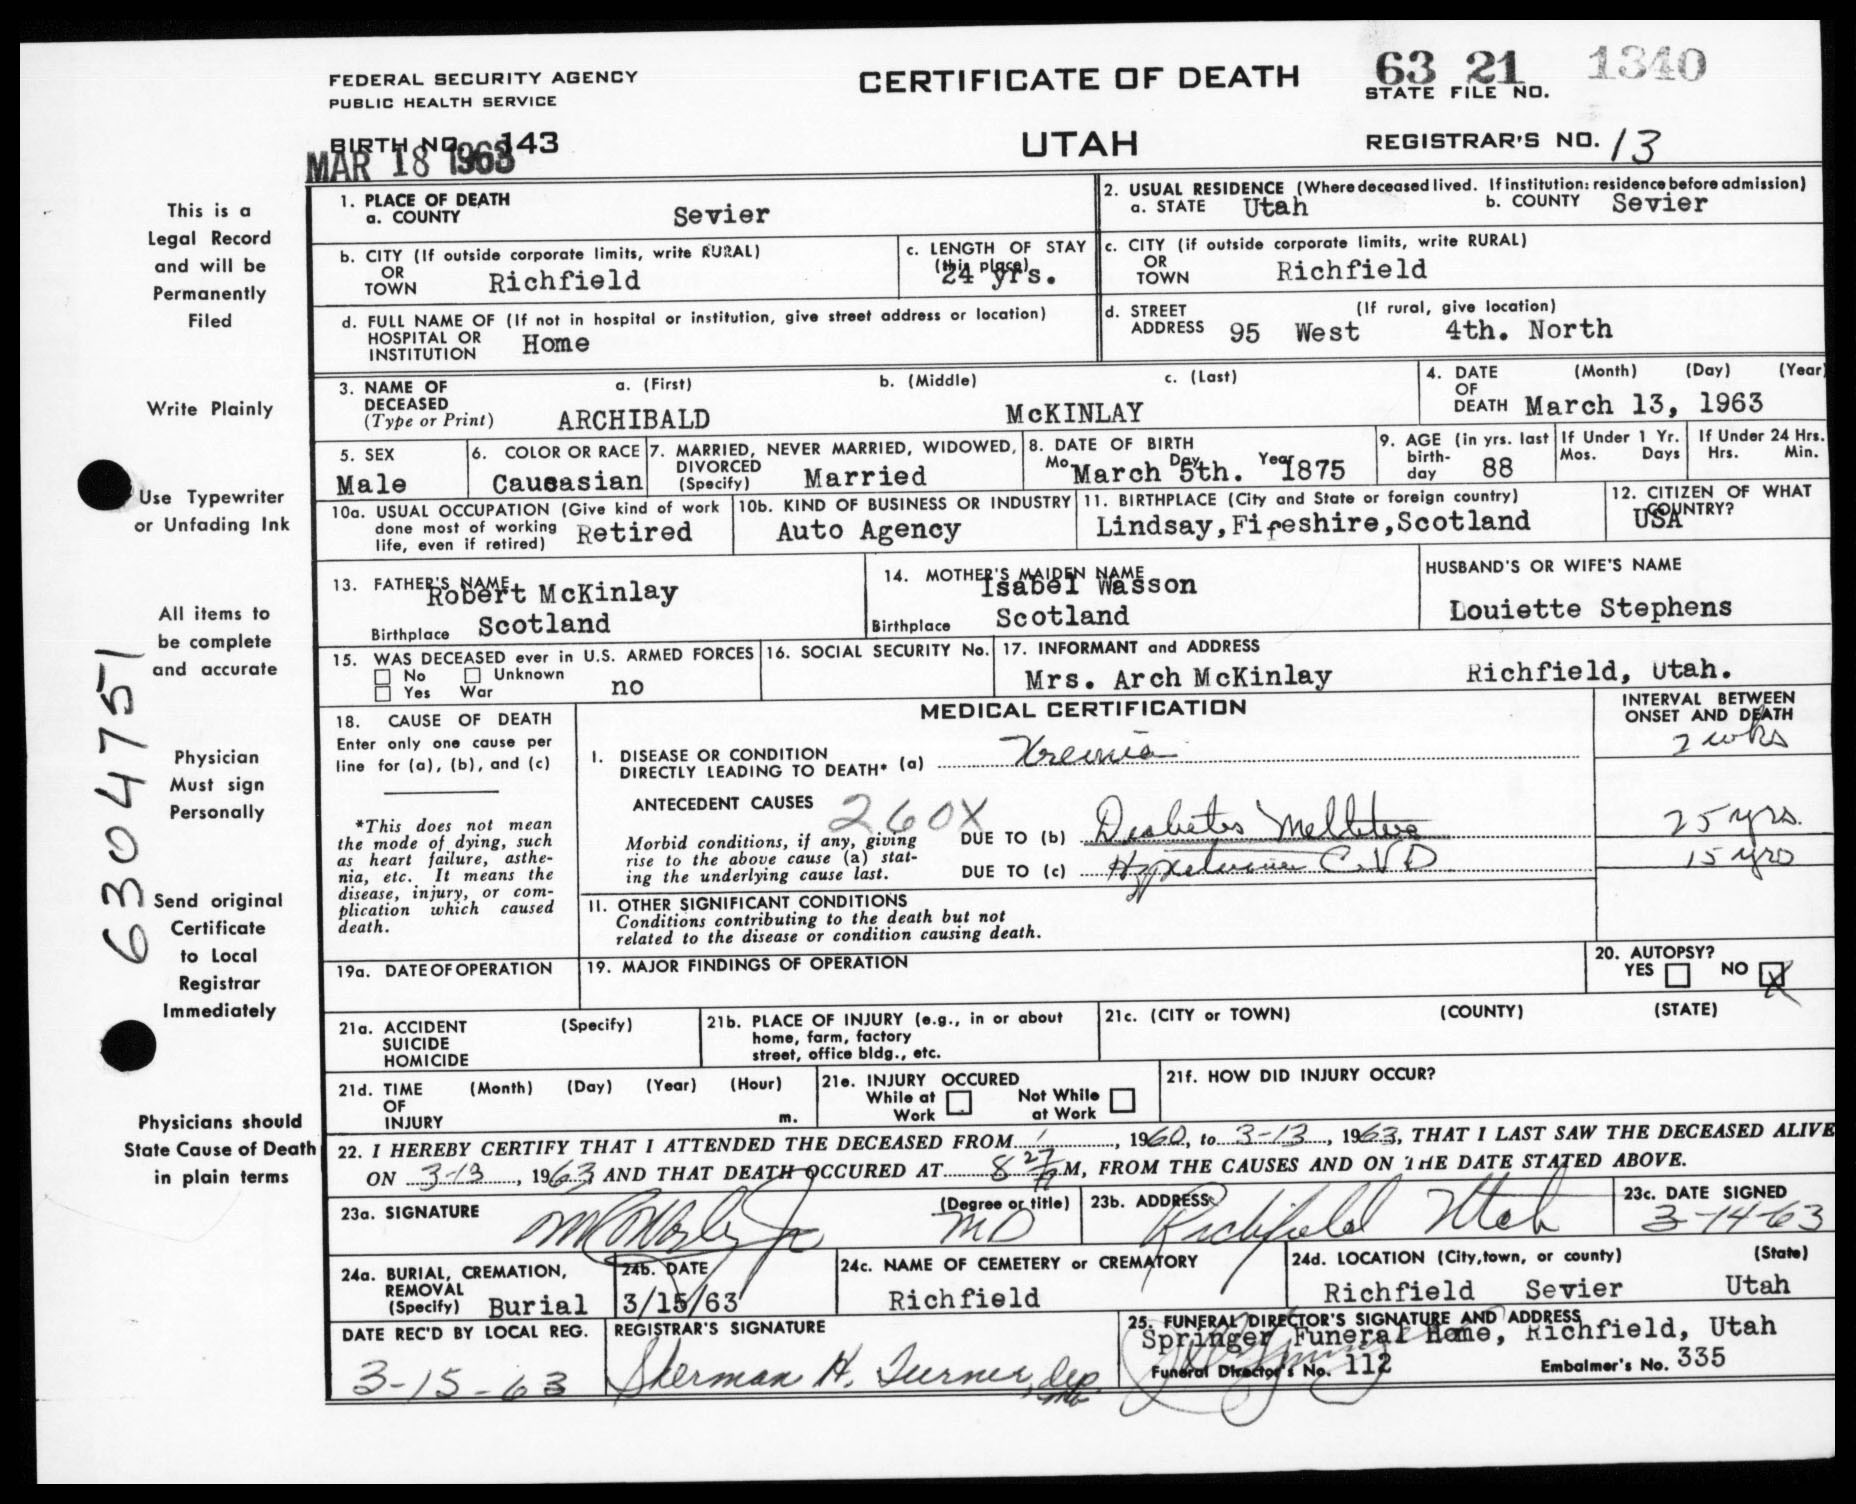 FEDERAL SECURITY AGENCY
PUBLIC HEALTH SERVICE
CERTIFICATE OF DEATH
63 21 1340
STATE FILE NO.
BIRTH NO. 143
MAR 18 1963
UTAH
REGISTRAR'S NO. 13
This is a
Legal Record
and will be
Permanently
Filed
Write Plainly
Use Typewriter
or Unfading Ink
All items to
be complete
and accurate
Physician
Must sign
Personally
Send original
Certificate
to Local
Registrar
Immediately
Physicians should
State Cause of Death
in plain terms
6304751
1. PLACE OF DEATH
a. COUNTY Sevier
2. USUAL RESIDENCE (Where deceased lived. If institution: residence before admission)
a. STATE Utah b. COUNTY Sevier
b. CITY (If outside corporate limits, write RURAL)
OR
TOWN Richfield
c. LENGTH OF STAY
(this place)
24 yrs.
c. CITY (if outside corporate limits, write RURAL)
OR
TOWN Richfield
d. FULL NAME OF (If not in hospital or institution, give street address or location)
HOSPITAL OR
INSTITUTION Home
d. STREET (If rural, give location)
ADDRESS 95 West 4th. North
3. NAME OF a. (First) b. (Middle) c. (Last)
DECEASED
(Type or Print) ARCHIBALD McKINLAY
4. DATE (Month) (Day) (Year)
OF
DEATH March 13, 1963
5. SEX
Male
6. COLOR OR RACE
Caucasian
7. MARRIED, NEVER MARRIED, WIDOWED,
DIVORCED
(Specify) Married
8. DATE OF BIRTH
Mo. Day Year
March 5th. 1875
9. AGE (in yrs. last
birth-
day 88
If Under 1 Yr.
Mos. Days
If Under 24 Hrs.
Hrs. Min.
10a. USUAL OCCUPATION (Give kind of work
done most of working
life, even if retired) Retired
10b. KIND OF BUSINESS OR INDUSTRY
Auto Agency
11. BIRTHPLACE (City and State or foreign country)
Lindsay, Fifeshire, Scotland
12. CITIZEN OF WHAT
COUNTRY?
USA
13. FATHER'S NAME
Robert McKinlay
Birthplace Scotland
14. MOTHER'S MAIDEN NAME
Isabel Wasson
Birthplace Scotland
HUSBAND'S OR WIFE'S NAME
Louiette Stephens
15. WAS DECEASED ever in U.S. ARMED FORCES
No Unknown
Yes War no
16. SOCIAL SECURITY No.
17. INFORMANT and ADDRESS
Mrs. Arch McKinlay Richfield, Utah.
18. CAUSE OF DEATH
Enter only one cause per
line for (a), (b), and (c)
*This does not mean
the mode of dying, such
as heart failure, asthe-
nia, etc. It means the
disease, injury, or com-
plication which caused
death.
MEDICAL CERTIFICATION
INTERVAL BETWEEN
ONSET AND DEATH
I. DISEASE OR CONDITION
DIRECTLY LEADING TO DEATH* (a) Uremia 2 wks
ANTECEDENT CAUSES 260X
Morbid conditions, if any, giving
rise to the above cause (a) stat-
ing the underlying cause last.
DUE TO (b) Diabetes Mellitus 25 yrs.
DUE TO (c) Hypertensive C.V.D. 15 yrs
II. OTHER SIGNIFICANT CONDITIONS
Conditions contributing to the death but not
related to the disease or condition causing death.
19a. DATE OF OPERATION
19. MAJOR FINDINGS OF OPERATION
20. AUTOPSY?
YES NO X
21a. ACCIDENT (Specify)
SUICIDE
HOMICIDE
21b. PLACE OF INJURY (e.g., in or about
home, farm, factory
street, office bldg., etc.
21c. (CITY or TOWN) (COUNTY) (STATE)
21d. TIME (Month) (Day) (Year) (Hour)
OF
INJURY m.
21e. INJURY OCCURED
While at Work Not While at Work
21f. HOW DID INJURY OCCUR?
22. I HEREBY CERTIFY THAT I ATTENDED THE DECEASED FROM 1, 1960, to 3-13, 1963, THAT I LAST SAW THE DECEASED ALIVE
ON 3-13, 1963 AND THAT DEATH OCCURED AT 8 27 M, FROM THE CAUSES AND ON THE DATE STATED ABOVE.
23a. SIGNATURE (Degree or title)
MD
23b. ADDRESS
Richfield Utah
23c. DATE SIGNED
3-14-63
24a. BURIAL, CREMATION,
REMOVAL
(Specify) Burial
24b. DATE
3/15/63
24c. NAME OF CEMETERY or CREMATORY
Richfield
24d. LOCATION (City, town, or county) (State)
Richfield Sevier Utah
DATE REC'D BY LOCAL REG.
3-15-63
REGISTRAR'S SIGNATURE
Sherman H. Turner, dep.
25. FUNERAL DIRECTOR'S SIGNATURE AND ADDRESS
Springer Funeral Home, Richfield, Utah
Funeral Director's No. 112 Embalmer's No. 335